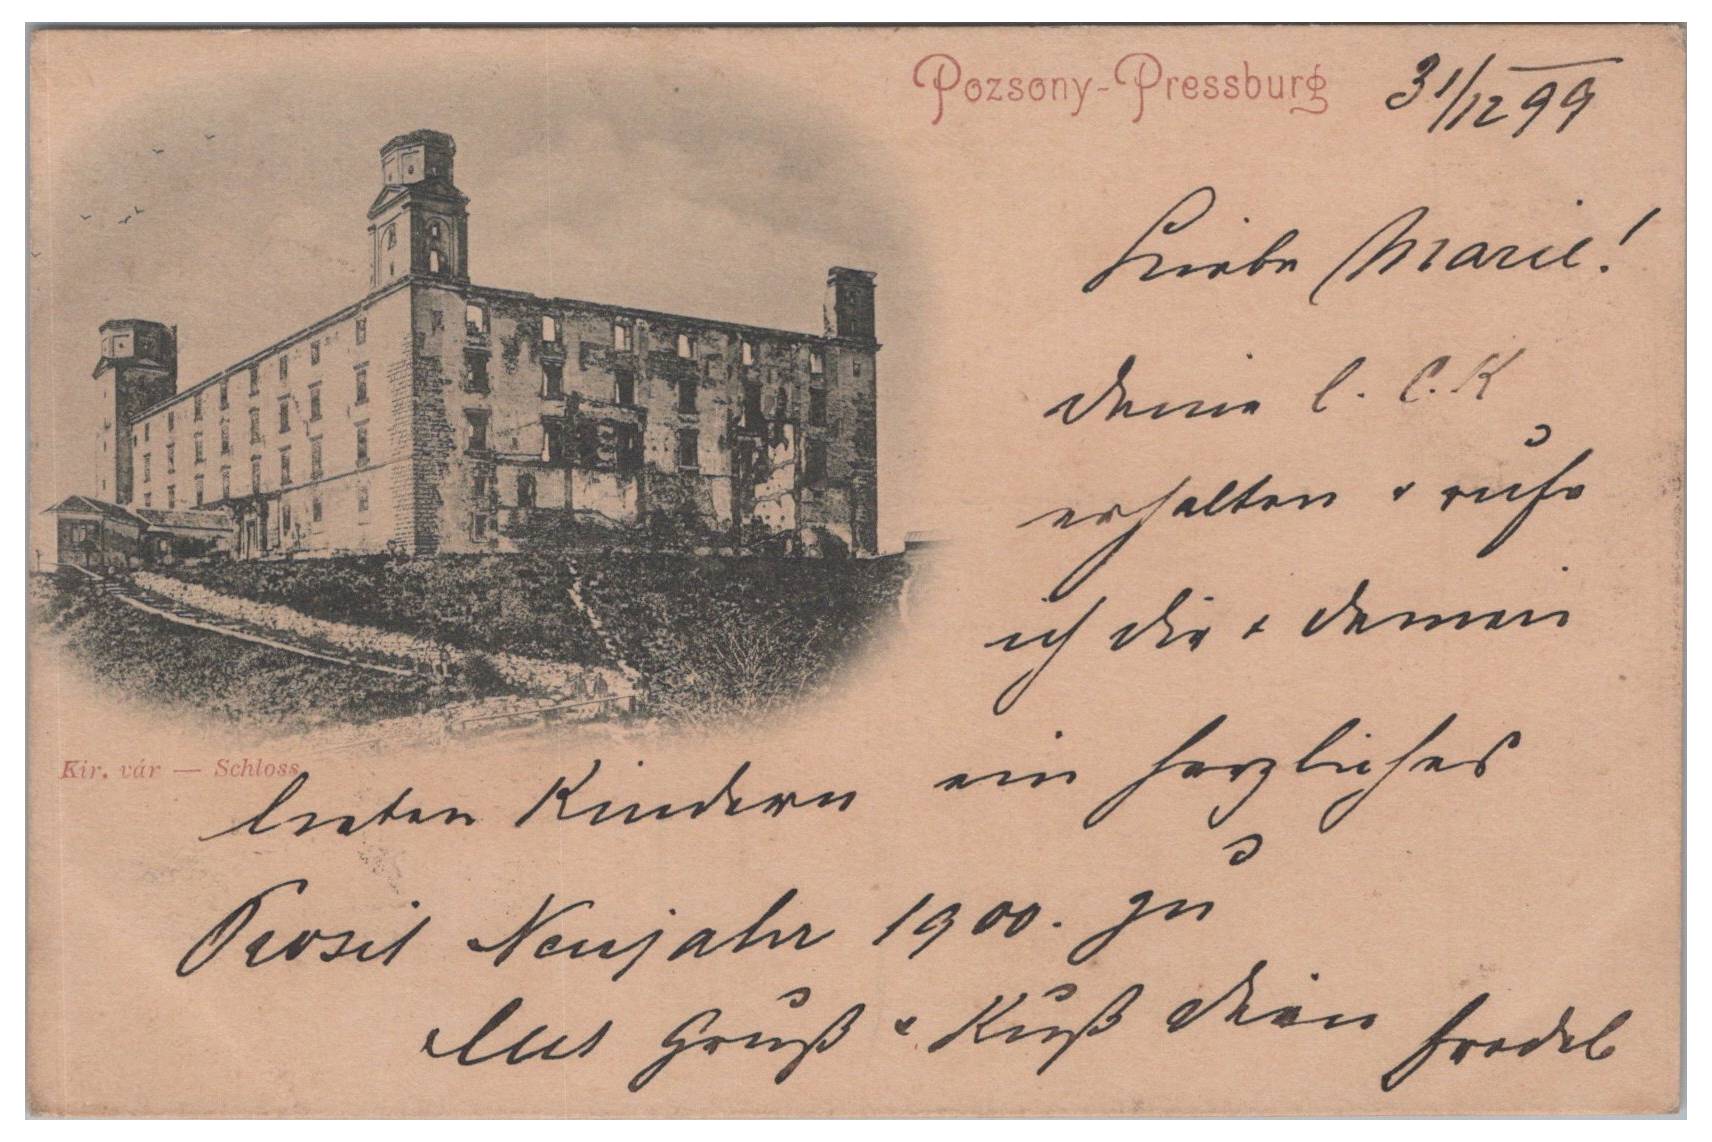 Pozsony-Pressburg
31/12 99
Liebe Marie!
Deine l. C.K
erhalten & rufe
ich dir & deinen
Kir. vár — Schloss
lieben Kindern ein herzliches
Prosit Neujahr 1900. zu
Mit Gruß & Kuß dein